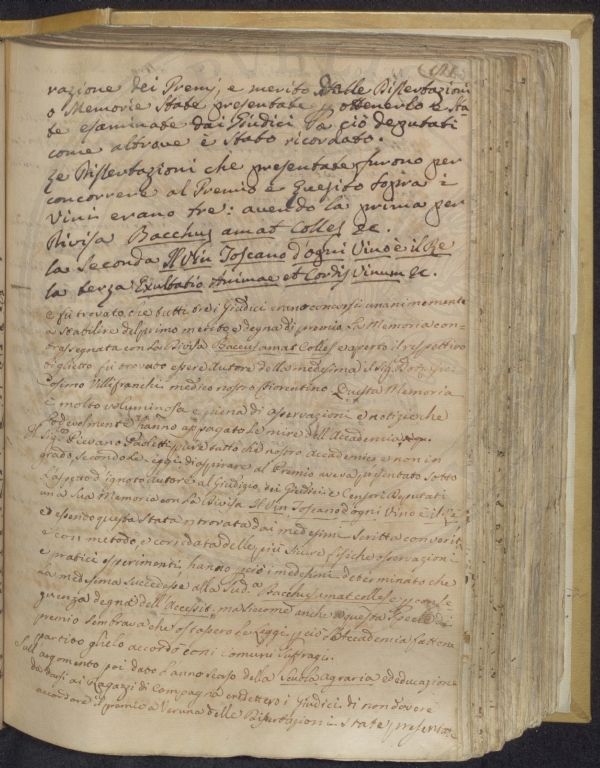 razione dei Premi, e merito dalle Dissertazioni
o Memorie state presentate p ottenerlo e sta-
te esaminate dai Giudici p a ciò deputati
come altrove è stato ricordato.
Le Dissertazioni che presentate furono per
concorrere al Premio e Quesito sopra i
Vini erano tre: avendo la prima per
Divisa Bacchus amat Colles &c.
la seconda Il Vin Toscano d'ogni Vino è il Re
la terza Exultatio Animae et Cordis Vinum &c.
E fù trovato che tutti tre i Giudici erano concorsi unanimemente
a stabilire del primo merito e degna di premio la Memoria con-
trassegnata con la Divisa Baccus amat Colles e aperto il respettivo
biglietto fù trovato essere Autore della medesima il Sig.
Cosimo Villifranchi medico nostro Fiorentino. Questa Memoria
è molto voluminosa e piena di osservazioni e notizie che
lodevolmente hanno appagato le mire dell'Accademia
Il Sig. Pievano Paoletti, pure fatto che nostro accademico e non in
grado secondo le leggi di aspirare al Premio aveva presentato sotto
l'aspetto d'ignoto Autore al Giudizio dei Giudici e Censori Deputati
una sua Memoria con la Divisa Il Vin Toscano d'ogni Vino è il Re
ed essendo questa stata ritrovata dai medesimi scritta con verità
e con metodo, e corredata delle più sicure fisiche osservazioni
e pratici esperimenti, hanno perciò i medesimi determinato che
la medesima succedesse alla sud.a Bacchus amat colles e p conse
guenza degna dell'Accessit. ma siccome anche a questa specie di
premio sembrava che ostassero le Legge, perciò l'Accademia fattone
partito glielo accordò con i Comuni suffragi.
Sull'argomento poi dato l'anno scaso della Scuola agraria ed educazione
da darsi ai Ragazzi di Campagna credettero i Giudici di non dovere
accordare il premio a Veruna delle Dissertazioni state presentate